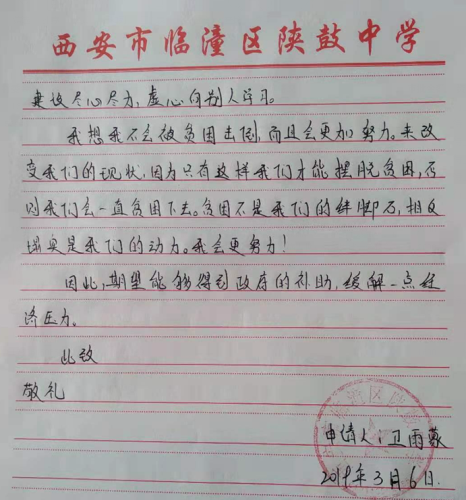 西安市临潼区陕鼓中学
建设尽心尽力,虚心向别人学习。
我想我不会被贫困击倒,而且会更加努力。来改
变我们的现状,因为只有这样我们才能摆脱贫困,否
则我们会一直贫困下去。贫困不是我们的绊脚石,相反
确实是我们的动力。我会更努力!
因此,期望能够得到政府的补助,缓解一点经
济压力。
此致
敬礼
申请人:卫雨蒙
2019年3月6日